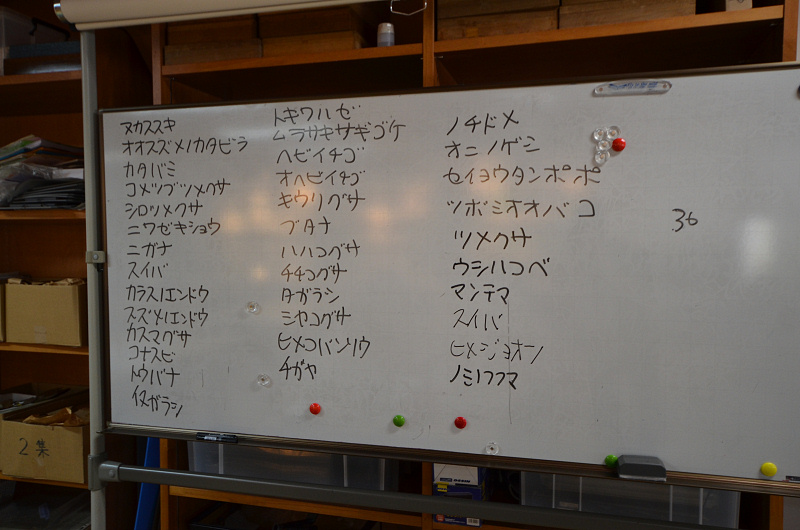 ヌカススキ
オオスズメノカタビラ
カタバミ
コメツブツメクサ
シロツメクサ
ニワゼキショウ
ニガナ
スイバ
カラスノエンドウ
スズメノエンドウ
カスマグサ
コナスビ
トウバナ
イヌガラシ
トキワハゼ
ムラサキサギゴケ
ヘビイチゴ
オヘビイチゴ
キウリグサ
ブタナ
ハハコグサ
チチコグサ
タガラシ
ミヤコグサ
ヒメコバンソウ
チガヤ
ノチドメ
オニノゲシ
セイヨウタンポポ
ツボミオオバコ
ツメクサ
ウシハコベ
マンテマ
スイバ
ヒメジョオン
ノミノフスマ
36
2集